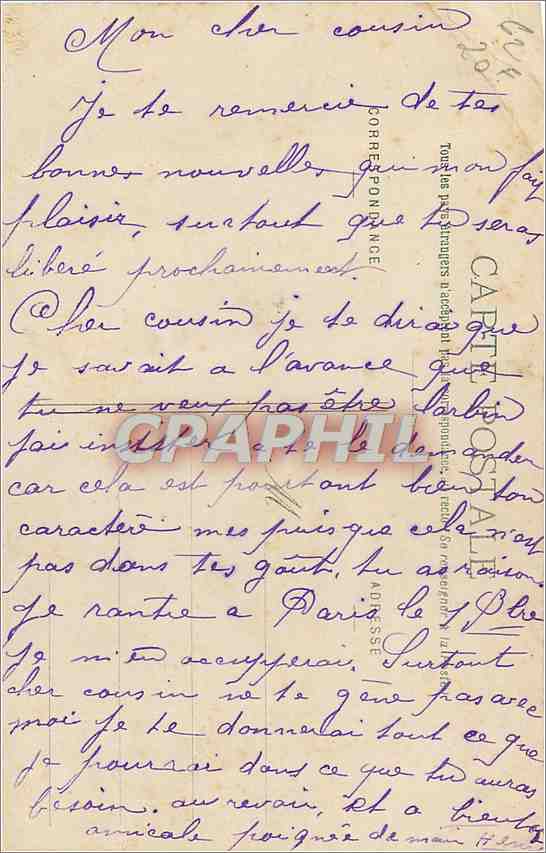 Mon cher cousin
Je te remercie de tes
bonnes nouvelles qui mon fait
plaisir, surtout que tu seras
libéré prochainement.
Cher cousin je te dirai que
je savait a l'avance que
tu ne veux pas être larbin
jai insister a te le demander
car cela est pourtant bien ton
caractère mes puisque cela n'est
pas dans tes goût, tu as raison.
Je rantre a Paris le 1 Bbre
je m'en occupperai. Surtout
cher cousin ne te gène pas avec
moi je te donnerai tout ce que
je pourrai dans ce que tu auras
besoin. au revoir, et a bientot
amicale poignée de main
CARTE POSTALE
Tous les pays étrangers n'acceptent pas la correspondance au recto. Se renseigner à la Poste
CORRESPONDANCE
ADRESSE
CPAPHIL